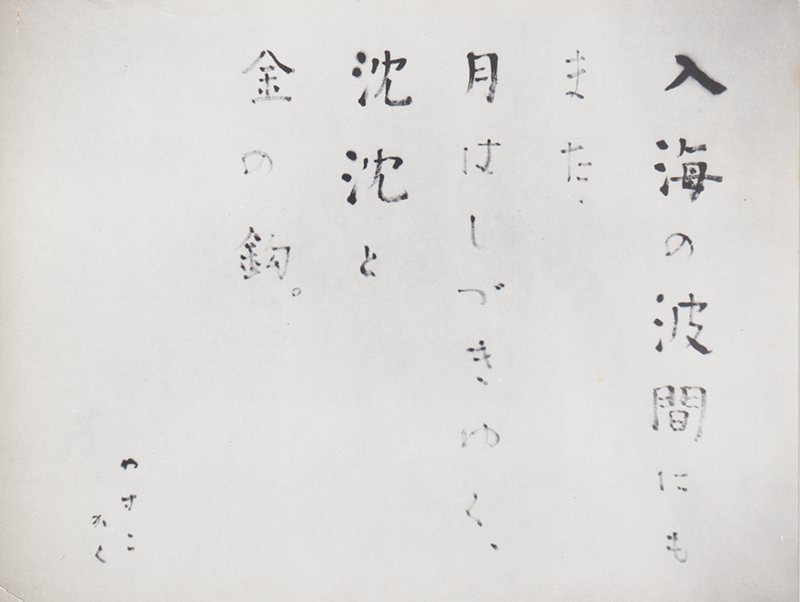 入海の波間にも
また、
月はしづきゆく、
沈沈と
金の鈎。
やすこ
かく